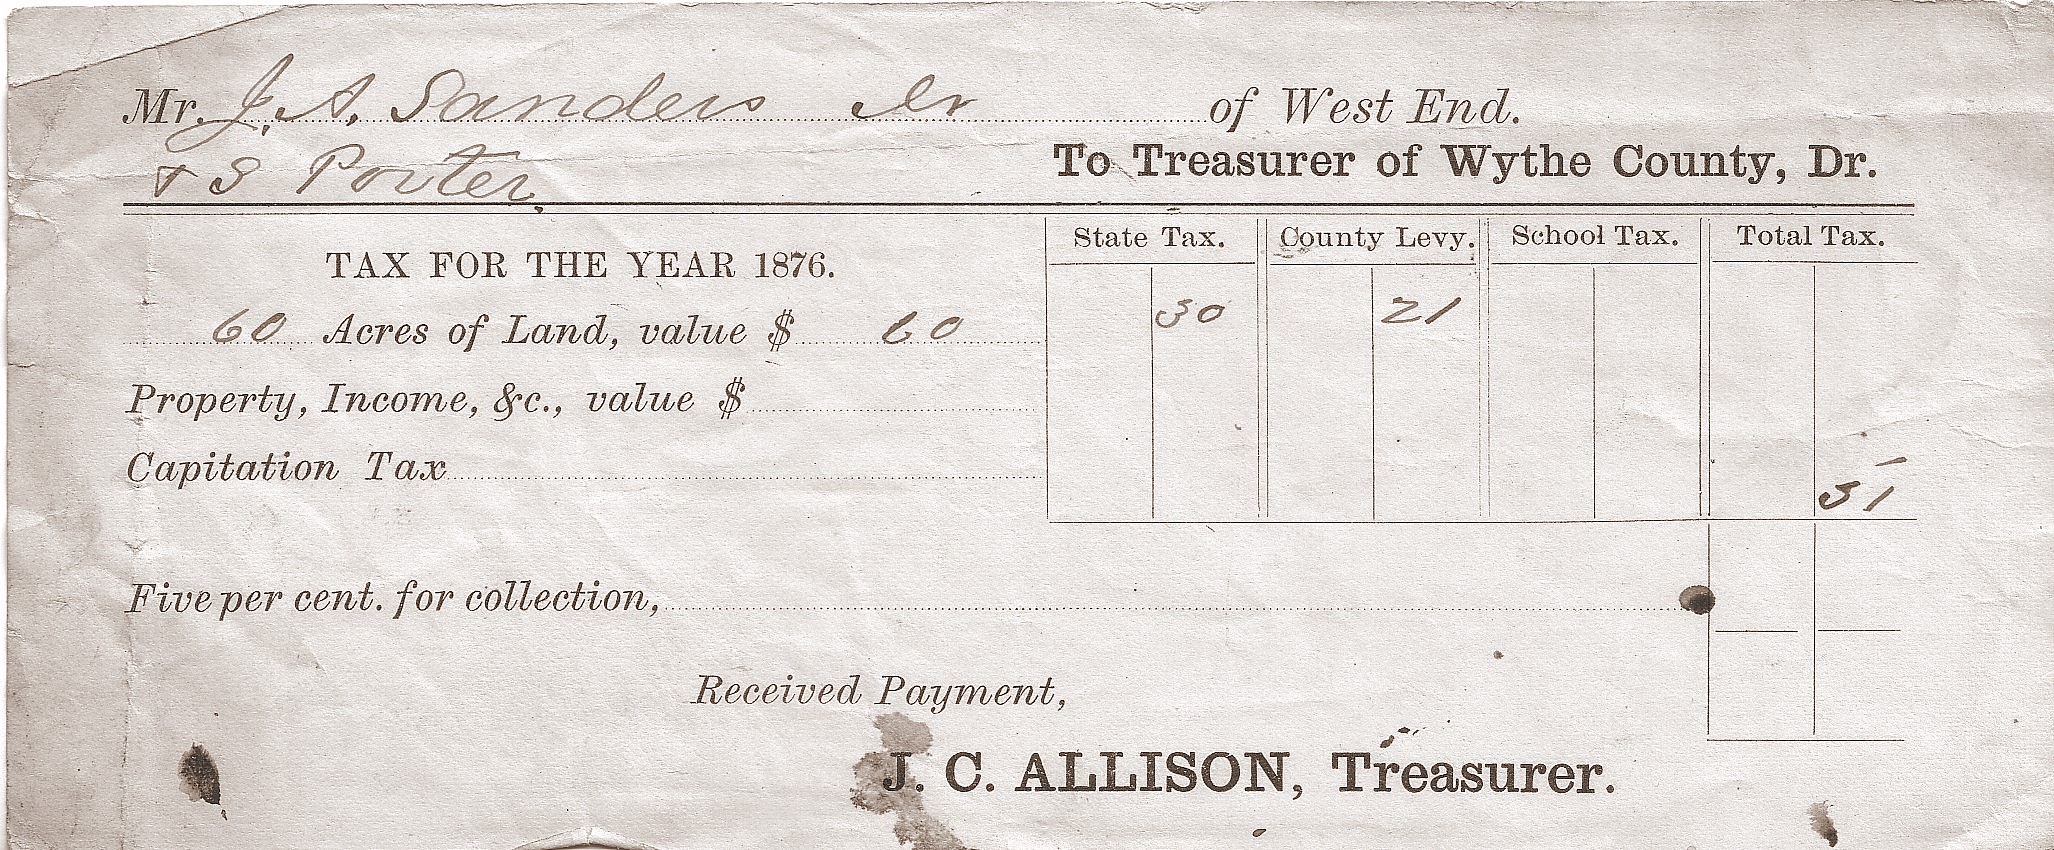 Mr. J. A. Sanders Jr of West End.
& S Porter.
To Treasurer of Wythe County, Dr.
TAX FOR THE YEAR 1876.
State Tax. County Levy. School Tax. Total Tax.
60 Acres of Land, value $ 60 30 21
Property, Income, &c., value $
Capitation Tax
51
Five per cent. for collection,
Received Payment,
J. C. ALLISON, Treasurer.